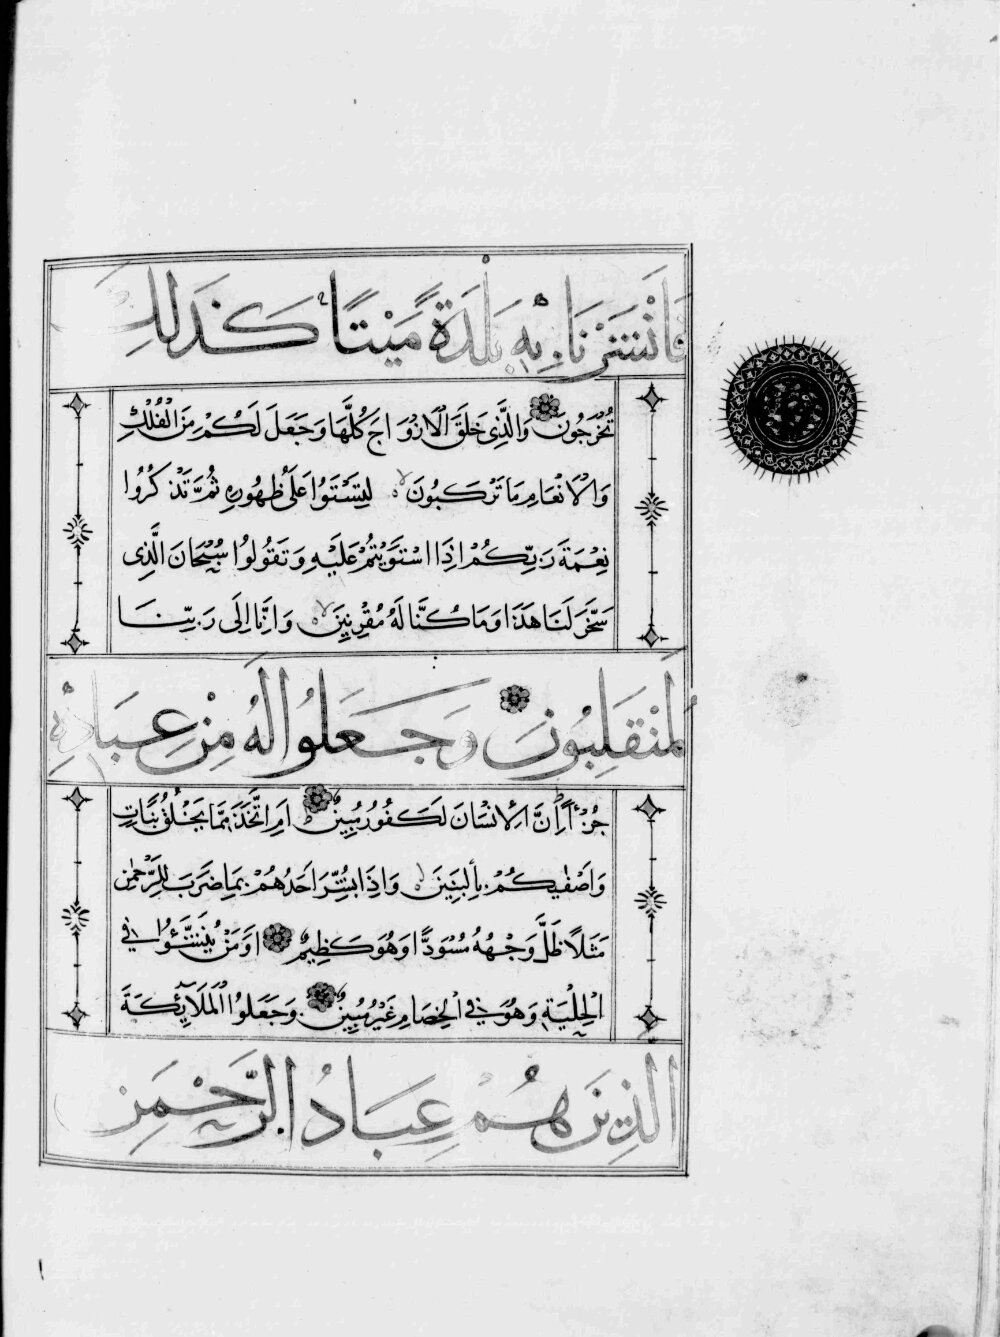 فَاَنْشَرْنَا بِهٖ بَلْدَةً مَيْتًا كَذَلِكَ
تُخْرَجُونَ وَالَّذِي خَلَقَ الْاَزْوَاجَ كُلَّهَا وَجَعَلَ لَكُمْ مِنَ الْفُلْكِ
وَالْاَنْعَامِ مَا تَرْكَبُونَ لا لِتَسْتَوُا عَلَى ظُهُورِهِ ثُمَّ تَذْكُرُوا
نِعْمَةَ رَبِّكُمْ اِذَا اسْتَوَيْتُمْ عَلَيْهِ وَتَقُولُوا سُبْحَانَ الَّذِى
سَخَّرَ لَنَا هَذَا وَمَا كُنَّا لَهُ مُقْرِنِينَ لا وَاِنَّا اِلَى رَبِّنَا
لَمُنْقَلِبُونَ وَجَعَلُوا لَهُ مِنْ عِبَادِهِ
جُزْءًا اِنَّ الْاِنْسَانَ لَكَفُورٌ مُبِينٌ اَمِ اتَّخَذَ مِمَّا يَخْلُقُ بَنَاتٍ
وَاَصْفٰيكُمْ بِالْبَنِينَ وَاِذَا بُشِّرَ اَحَدُهُمْ بِمَا ضَرَبَ لِلرَّحْمٰنِ
مَثَلًا ظَلَّ وَجْهُهُ مُسْوَدًّا وَهُوَ كَظِيمٌ اَوَمَنْ يُنَشَّؤُا فِي
الْحِلْيَةِ وَهُوَ فِي الْخِصَامِ غَيْرُ مُبِينٍ وَجَعَلُوا الْمَلَائِكَةَ
الَّذِينَ هُمْ عِبَادُ الرَّحْمَنِ